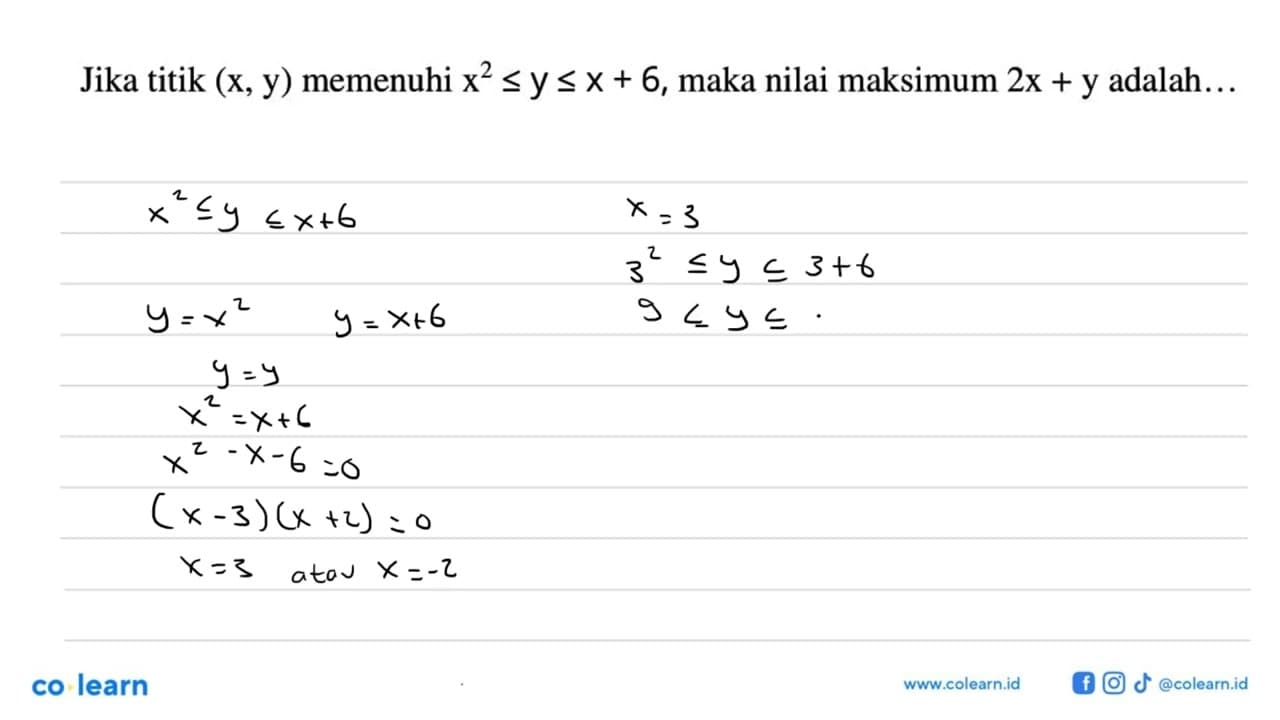 Jika titik (x, y) memenuhi x² ≤ y ≤ x + 6, maka nilai maksimum 2x + y adalah...
x² ≤ y ≤ x+6
y = x² y = x+6
y = y
x² = x+6
x² - x - 6 = 0
(x - 3)(x + 2) = 0
x = 3 atau x = -2
x = 3
3² ≤ y ≤ 3+6
9 ≤ y ≤ .
co learn
www.colearn.id
@colearn.id